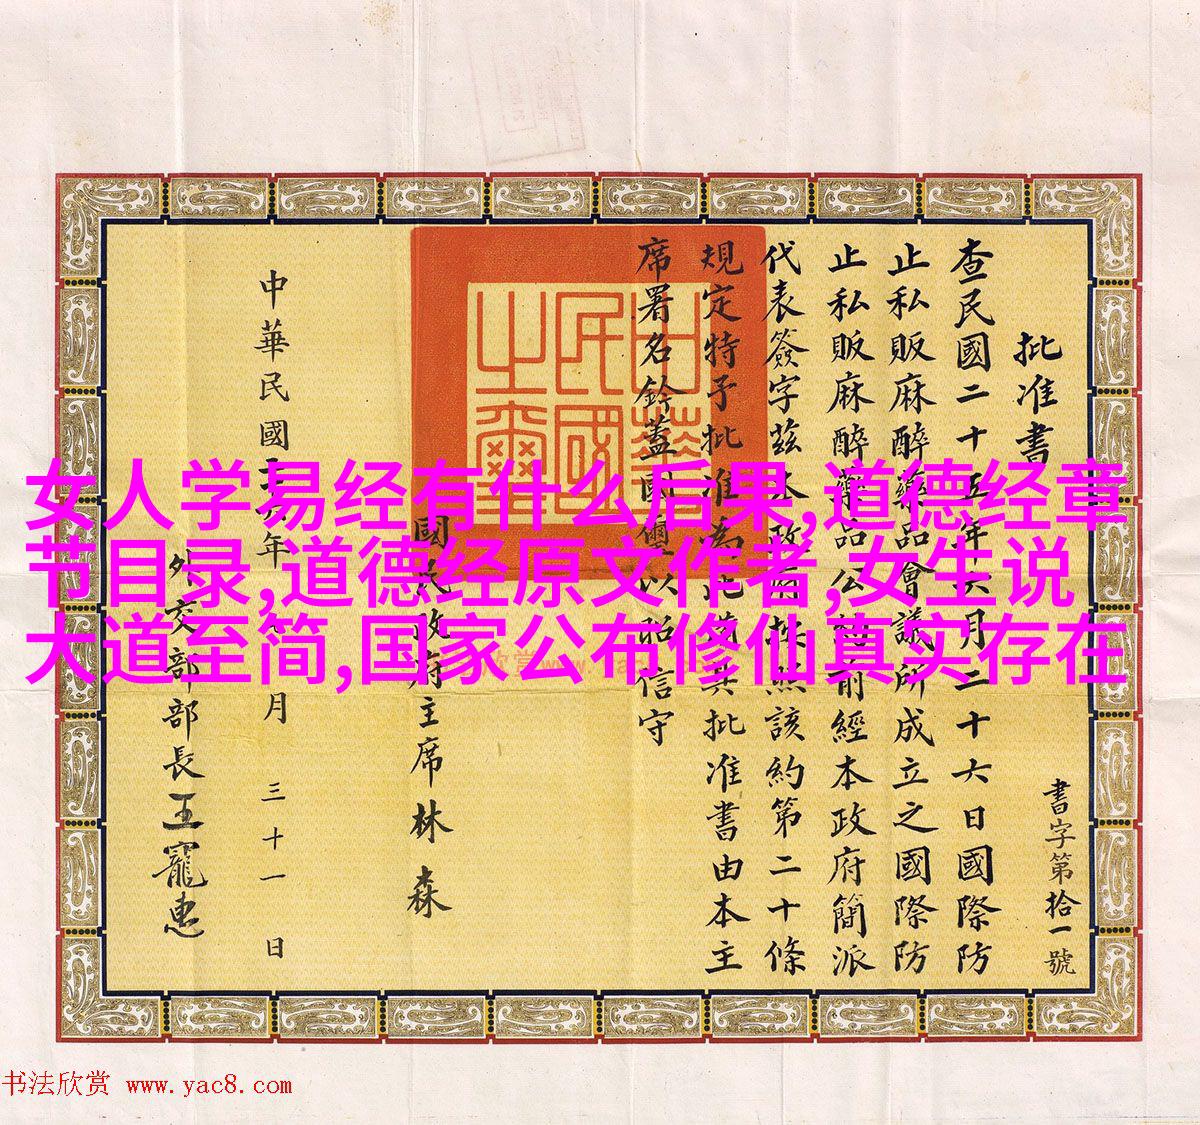 批准書
書字第拾一號
查民國二十五年六月二十六日國際防
止私販麻醉藥品會議所成立之國際防
止私販麻醉藥品公約前經本政府簡派
代表簽字茲本政府照該約第二十條
規定特予批准為此備具批准書由本主
席署名鈐蓋國璽以昭信守
中華民國之璽
國民政府主席林森
中華民國年月三十一日
外交部部長王寵惠
女人学易经有什么后果,道德经章
节目录,道德经原文作者,女生说
大道至简,国家公布修仙真实存在
书法欣赏 www.yac8.com